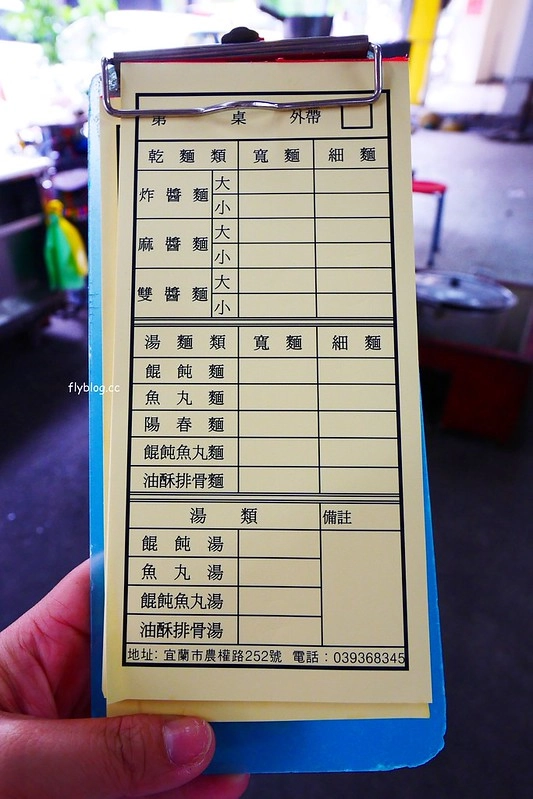 第 桌 外帶
乾麵類 寬麵 細麵
炸醬麵 大
小
麻醬麵 大
小
雙醬麵 大
小
湯麵類 寬麵 細麵
餛飩麵
魚丸麵
陽春麵
餛飩魚丸麵
油酥排骨麵
湯類 備註
餛飩湯
魚丸湯
餛飩魚丸湯
油酥排骨湯
地址: 宜蘭市農權路252號 電話：039368345
flyblog.cc